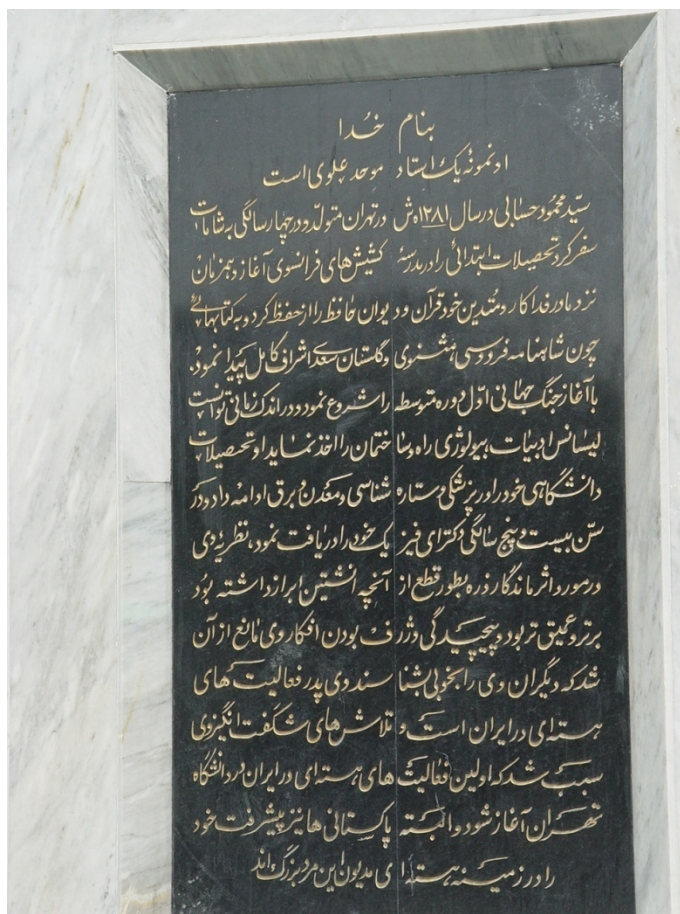 بنام خُدا
او نمونهٔ یک استاد موحد علوی است
سیّد محمود حسابی در سال ۱۲۸۱ ه ش در تهران متولّد و در چهار سالگی به شامات
سفر کرد تحصیلات ابتدائی را در مدرسهٔ کشیش های فرانسوی آغاز و همزمان
نزد مادر فداکار و مُتدین خود قرآن و دیوان حافظ را از حفظ کرد و به کتابهائی
چون شاهنامه فردوسی، مثنوی و گلستان سعدی اشراف کامل پیدا نمود،
با آغاز جنگ جهانی اوّل دوره متوسطه را شروع نمود و در اندک زمانی توانست
لیسانس ادبیات، بیولوژی، راه و ساختمان را اخذ نماید او تحصیلات
دانشگاهی خود را در پزشکی و ستاره شناسی و معدن و برق ادامه داد و در
سن بیست و پنج سالگی دکترای فیزیک خود را دریافت نمود، نظریه وی
در مورد اثر ماندگار ذره بطور قطع از آنچه انشتین ابراز داشته بود
برتر و عمیق تر بود و پیچیدگی و ژرف بودن افکار وی مانع از آن
شد که دیگران وی را بخوبی بشناسند وی پدر فعالیت های
هسته ای در ایران است و تلاش های شگفت انگیز وی
سبب شد که اولین فعالیت های هسته ای در ایران در دانشگاه
تهران آغاز شود و البته پاکستانی ها نیز پیشرفت خود
را در زمینه هسته ای مدیون این مرد بزرگ اند